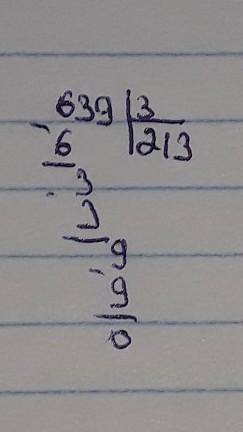 639 3
-6 213
-3
3
-9
9
0